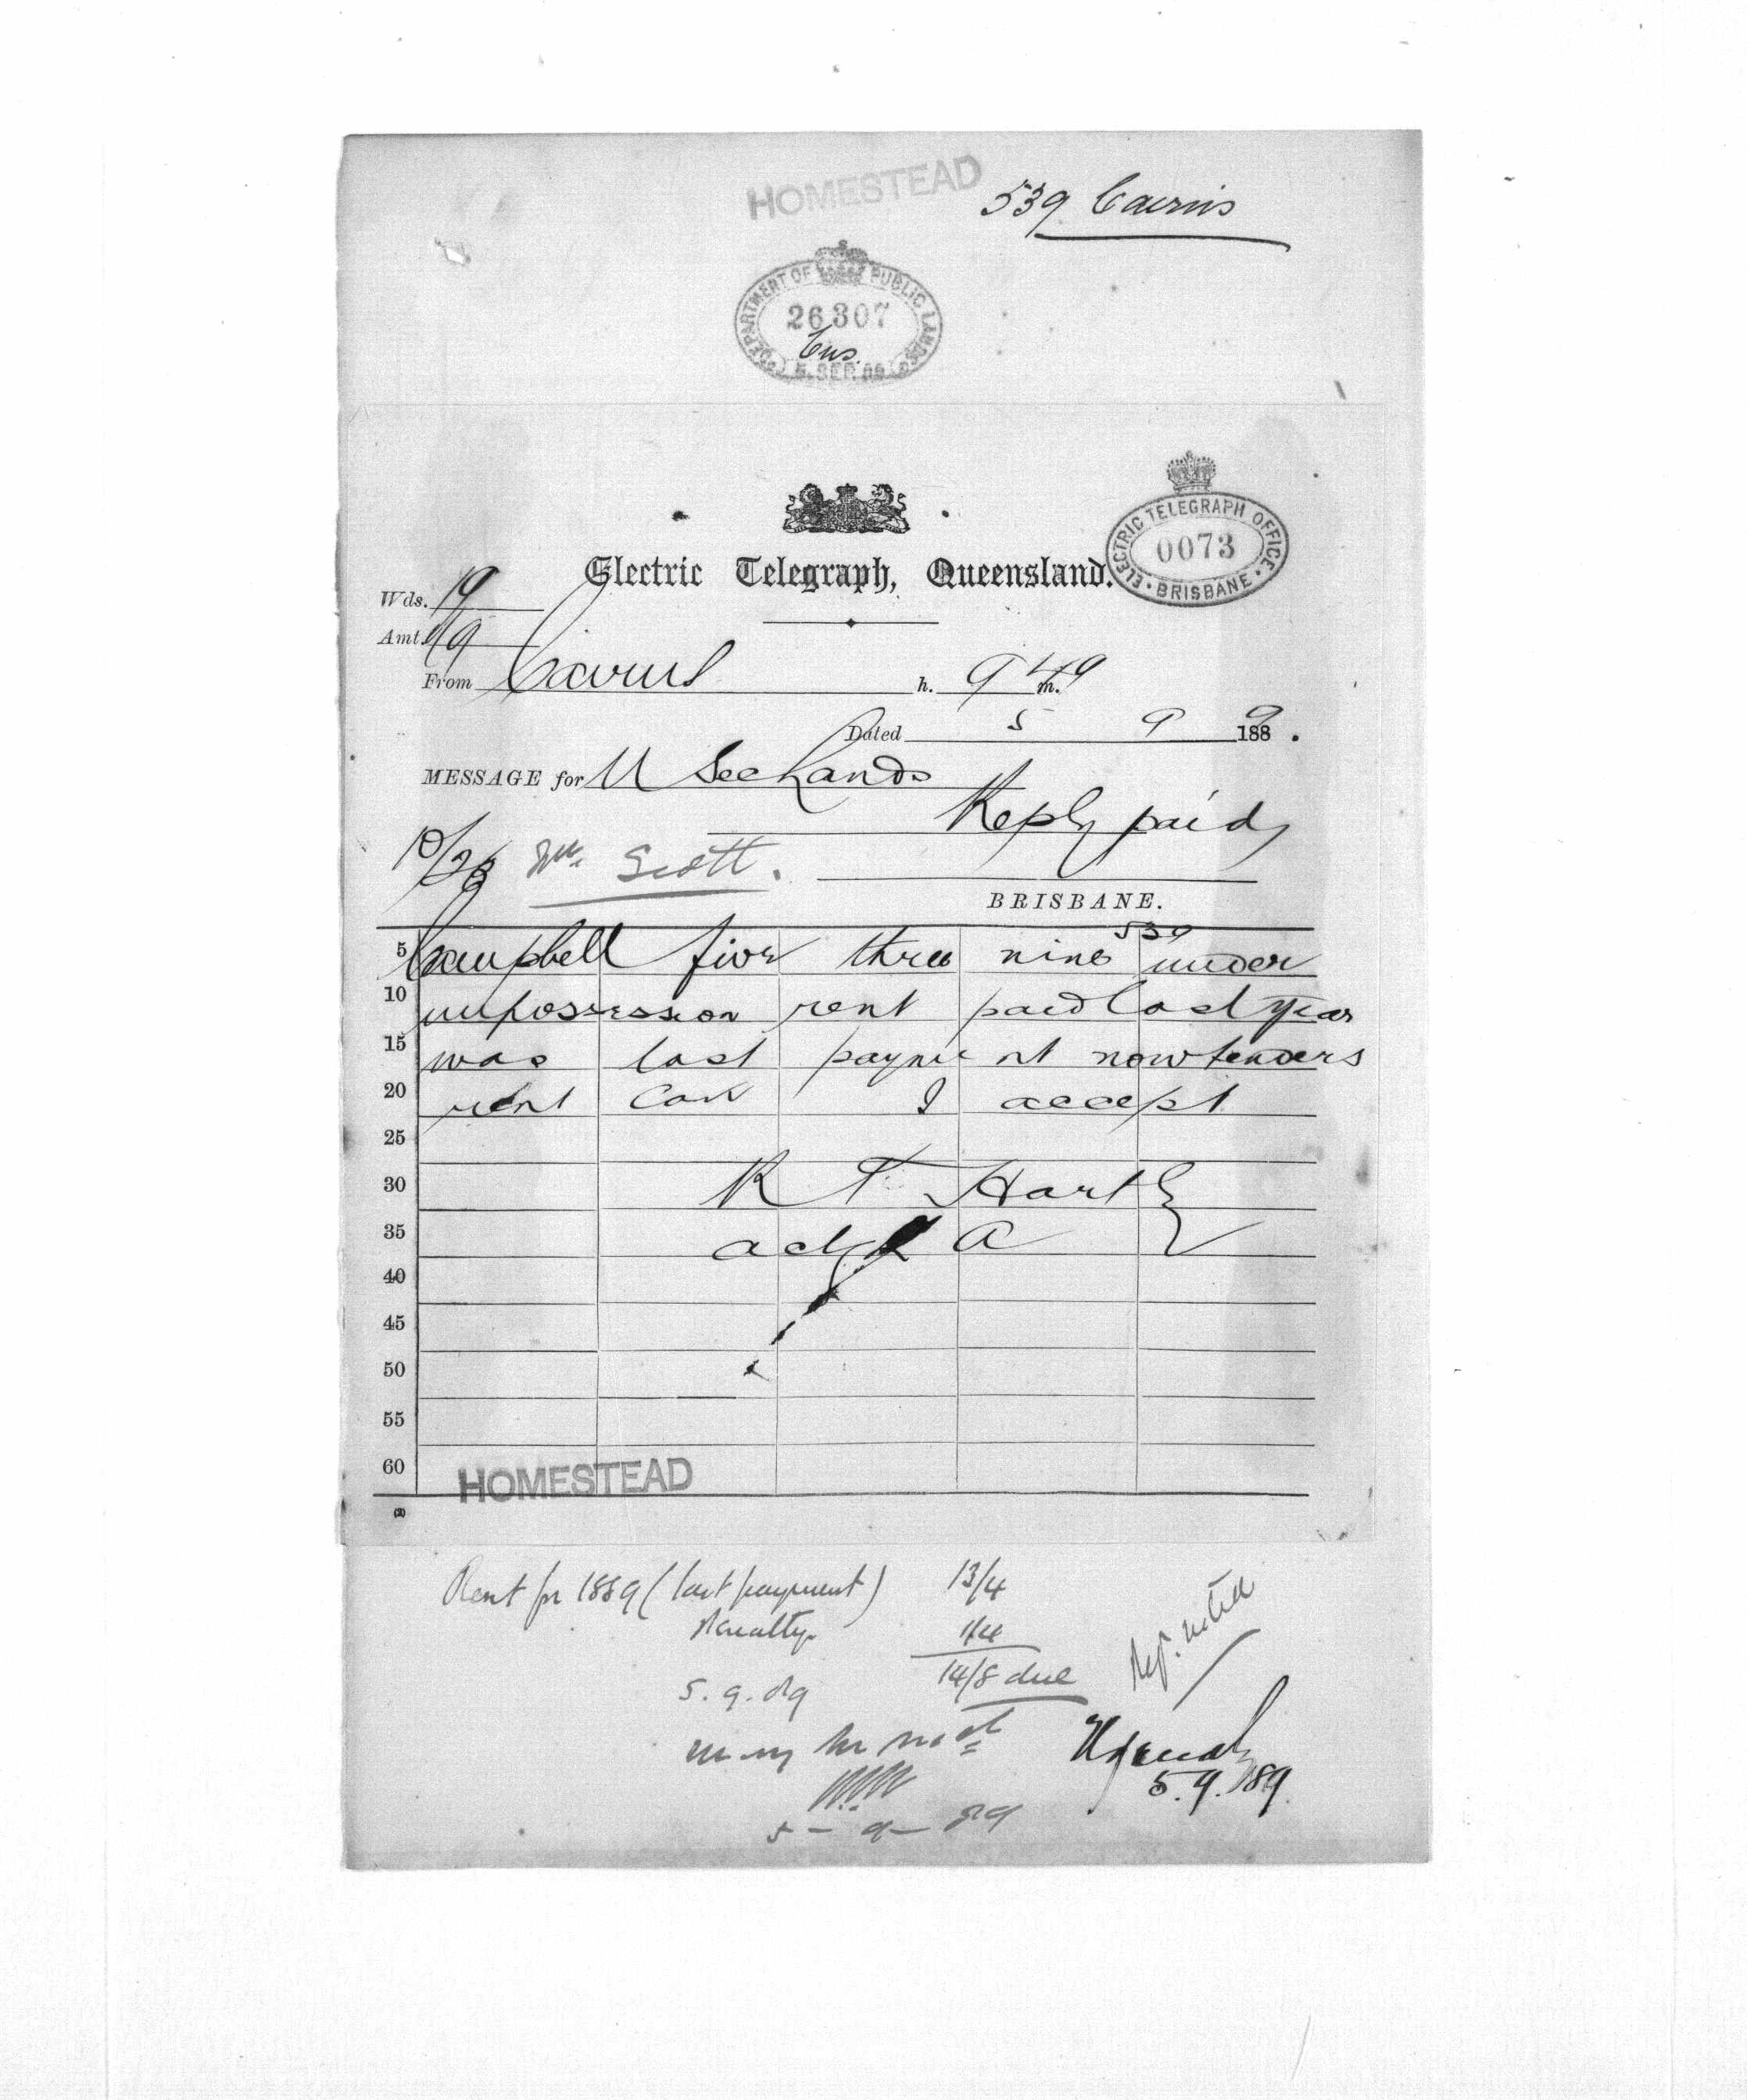 HOMESTEAD
539 Cairns
DEPARTMENT OF PUBLIC LANDS
26307
Cns.
5. SEP. 89
ELECTRIC TELEGRAPH OFFICE
0073
BRISBANE
Electric Telegraph, Queensland.
Wds. 19
Amt. 1/9
From Cairns h. 9 m. 49
Dated 5 9 1889.
MESSAGE for U Sec Lands
Reply paid
10/26 Mr. Scott.
BRISBANE.
539
5 Campbell five three nine under
10 impossession rent paid last year
15 was last payment now tenders
20 rent Can I accept
25
30 R T Hartley
35 actg L A
40
45
50
55
60
HOMESTEAD
(2)
Rent for 1889 (last payment) 13/4
Penalty. 1/4
14/8 due
5.9.89
Ref. noted
5.9.89.
5-9-89